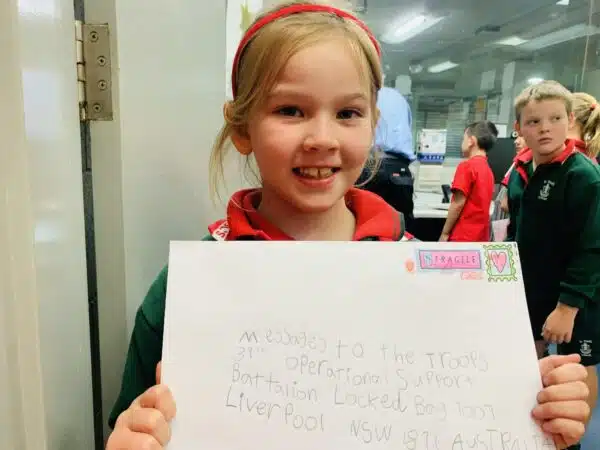 FRAGILE
Messages to the Troops
Operational Support
Battalion Locked Bag
Liverpool NSW 1871 AUSTRALIA